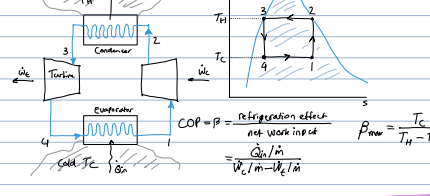 T_H
Condenser
3
2
Ẇt
Turbine
Ẇc
Evaporator
4
1
Cold T_C
Q̇in
T_H
3
2
T_C
4
1
s
COP = β = refrigeration effect / net work input
= Q̇in/ṁ / Ẇc/ṁ - Ẇt/ṁ
βmax = T_C / T_H -